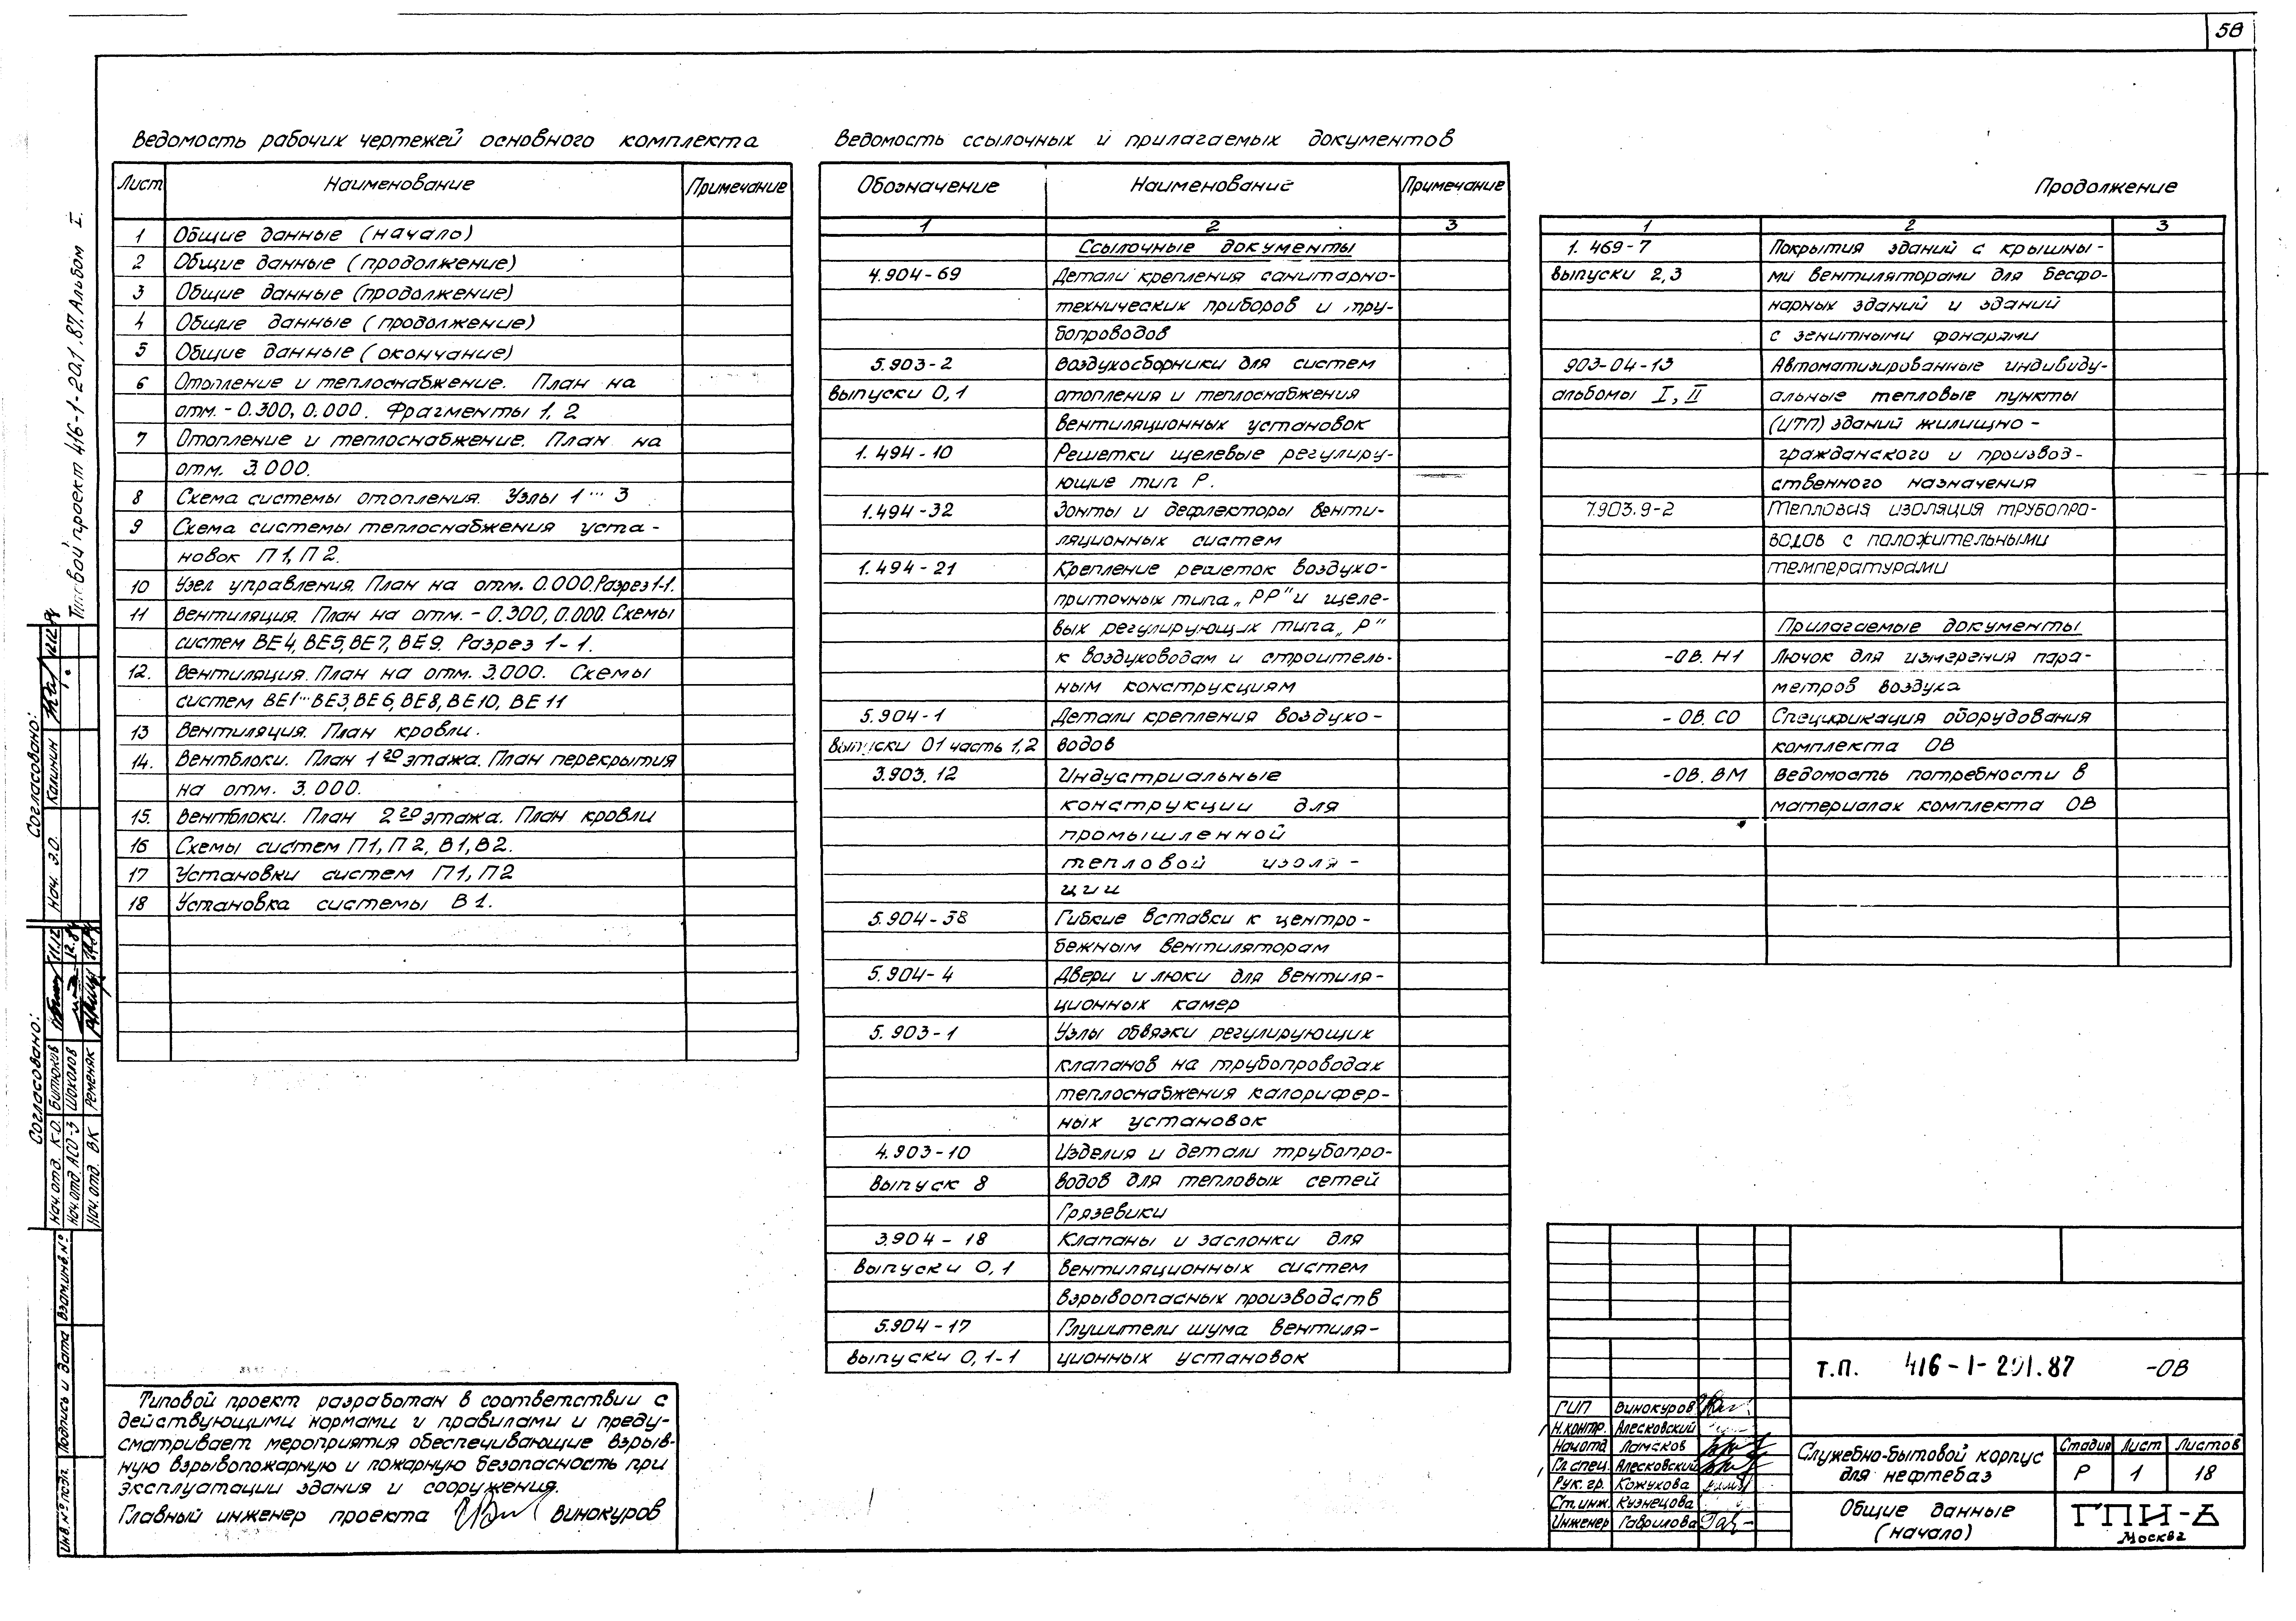 58
Ведомость рабочих чертежей основного комплекта
Лист Наименование Примечание
1 Общие данные (начало)
2 Общие данные (продолжение)
3 Общие данные (продолжение)
4 Общие данные (продолжение)
5 Общие данные (окончание)
6 Отопление и теплоснабжение. План на
отм. -0.300, 0.000. Фрагменты 1, 2
7 Отопление и теплоснабжение. План на
отм. 3.000.
8 Схема системы отопления. Узлы 1...3
9 Схема системы теплоснабжения уста-
новок П1, П2.
10 Узел управления. План на отм. 0.000. Разрез 1-1.
11 Вентиляция. План на отм. -0.300, 0.000. Схемы
систем ВЕ4, ВЕ5, ВЕ7, ВЕ9. Разрез 1-1.
12. Вентиляция. План на отм. 3.000. Схемы
систем ВЕ1...ВЕ3, ВЕ6, ВЕ8, ВЕ10, ВЕ11
13 Вентиляция. План кровли.
14. Вентблоки. План 1го этажа. План перекрытия
на отм. 3.000.
15. Вентблоки. План 2го этажа. План кровли
16 Схемы систем П1, П2, В1, В2.
17 Установки систем П1, П2
18 Установка системы В1.
Ведомость ссылочных и прилагаемых документов
Обозначение Наименование Примечание
1 2 3
Ссылочные документы
4.904-69 Детали крепления санитарно-
технических приборов и тру-
бопроводов
5.903-2 Воздухосборники для систем
выпуски 0,1 отопления и теплоснабжения
вентиляционных установок
1.494-10 Решетки щелевые регулиру-
ющие тип Р.
1.494-32 Зонты и дефлекторы венти-
ляционных систем
1.494-21 Крепление решеток воздухо-
приточных типа „РР" и щеле-
вых регулирующих типа „Р"
к воздуховодам и строитель-
ным конструкциям
5.904-1 Детали крепления воздухо-
выпуски 01 часть 1,2 водов
3.903.12 Индустриальные
конструкции для
промышленной
тепловой изоля-
ции
5.904-38 Гибкие вставки к центро-
бежным вентиляторам
5.904-4 Двери и люки для вентиля-
ционных камер
5.903-1 Узлы обвязки регулирующих
клапанов на трубопроводах
теплоснабжения калорифер-
ных установок
4.903-10 Изделия и детали трубопро-
выпуск 8 водов для тепловых сетей
Грязевики
3.904-18 Клапаны и заслонки для
выпуски 0,1 вентиляционных систем
взрывоопасных производств
5.904-17 Глушители шума вентиля-
выпуски 0,1-1 ционных установок
Продолжение
1 2 3
1.469-7 Покрытия зданий с крышны-
выпуски 2,3 ми вентиляторами для бесфо-
нарных зданий и зданий
с зенитными фонарями
903-04-13 Автоматизированные индивиду-
альбомы I, II альные тепловые пункты
(ИТП) зданий жилищно-
гражданского и производ-
ственного назначения
7.903.9-2 Тепловая изоляция трубопро-
водов с положительными
температурами
Прилагаемые документы
-ОВ.Н1 Лючок для измерения пара-
метров воздуха
-ОВ.СО Спецификация оборудования
комплекта ОВ
-ОВ.ВМ Ведомость потребности в
материалах комплекта ОВ
Типовой проект разработан в соответствии с
действующими нормами и правилами и преду-
сматривает мероприятия обеспечивающие взрыв-
ную взрывопожарную и пожарную безопасность при
эксплуатации здания и сооружения.
Главный инженер проекта Винокуров
Т.П. 416-1-201.87 -ОВ
ГИП Винокуров
Н.контр. Алесковский
Нач.отд Ламсков
Гл.спец. Алесковский
Рук.гр. Кожухова
Ст.инж. Кузнецова
Инженер Гаврилова
Служебно-бытовой корпус
для нефтебаз
Стадия Лист Листов
Р 1 18
Общие данные
(начало)
ГПИ-6
Москва
Типовой проект 416-1-201.87. Альбом I.
Согласовано:
Нач. Э.О. Калинин
Согласовано:
Нач.отд. К-О. Битюков 11.12
Нач.отд. АСО-3 Шохолов
Нач.отд. ВК Ременяк
Инв.№ подл. Подпись и дата Взам.инв.№